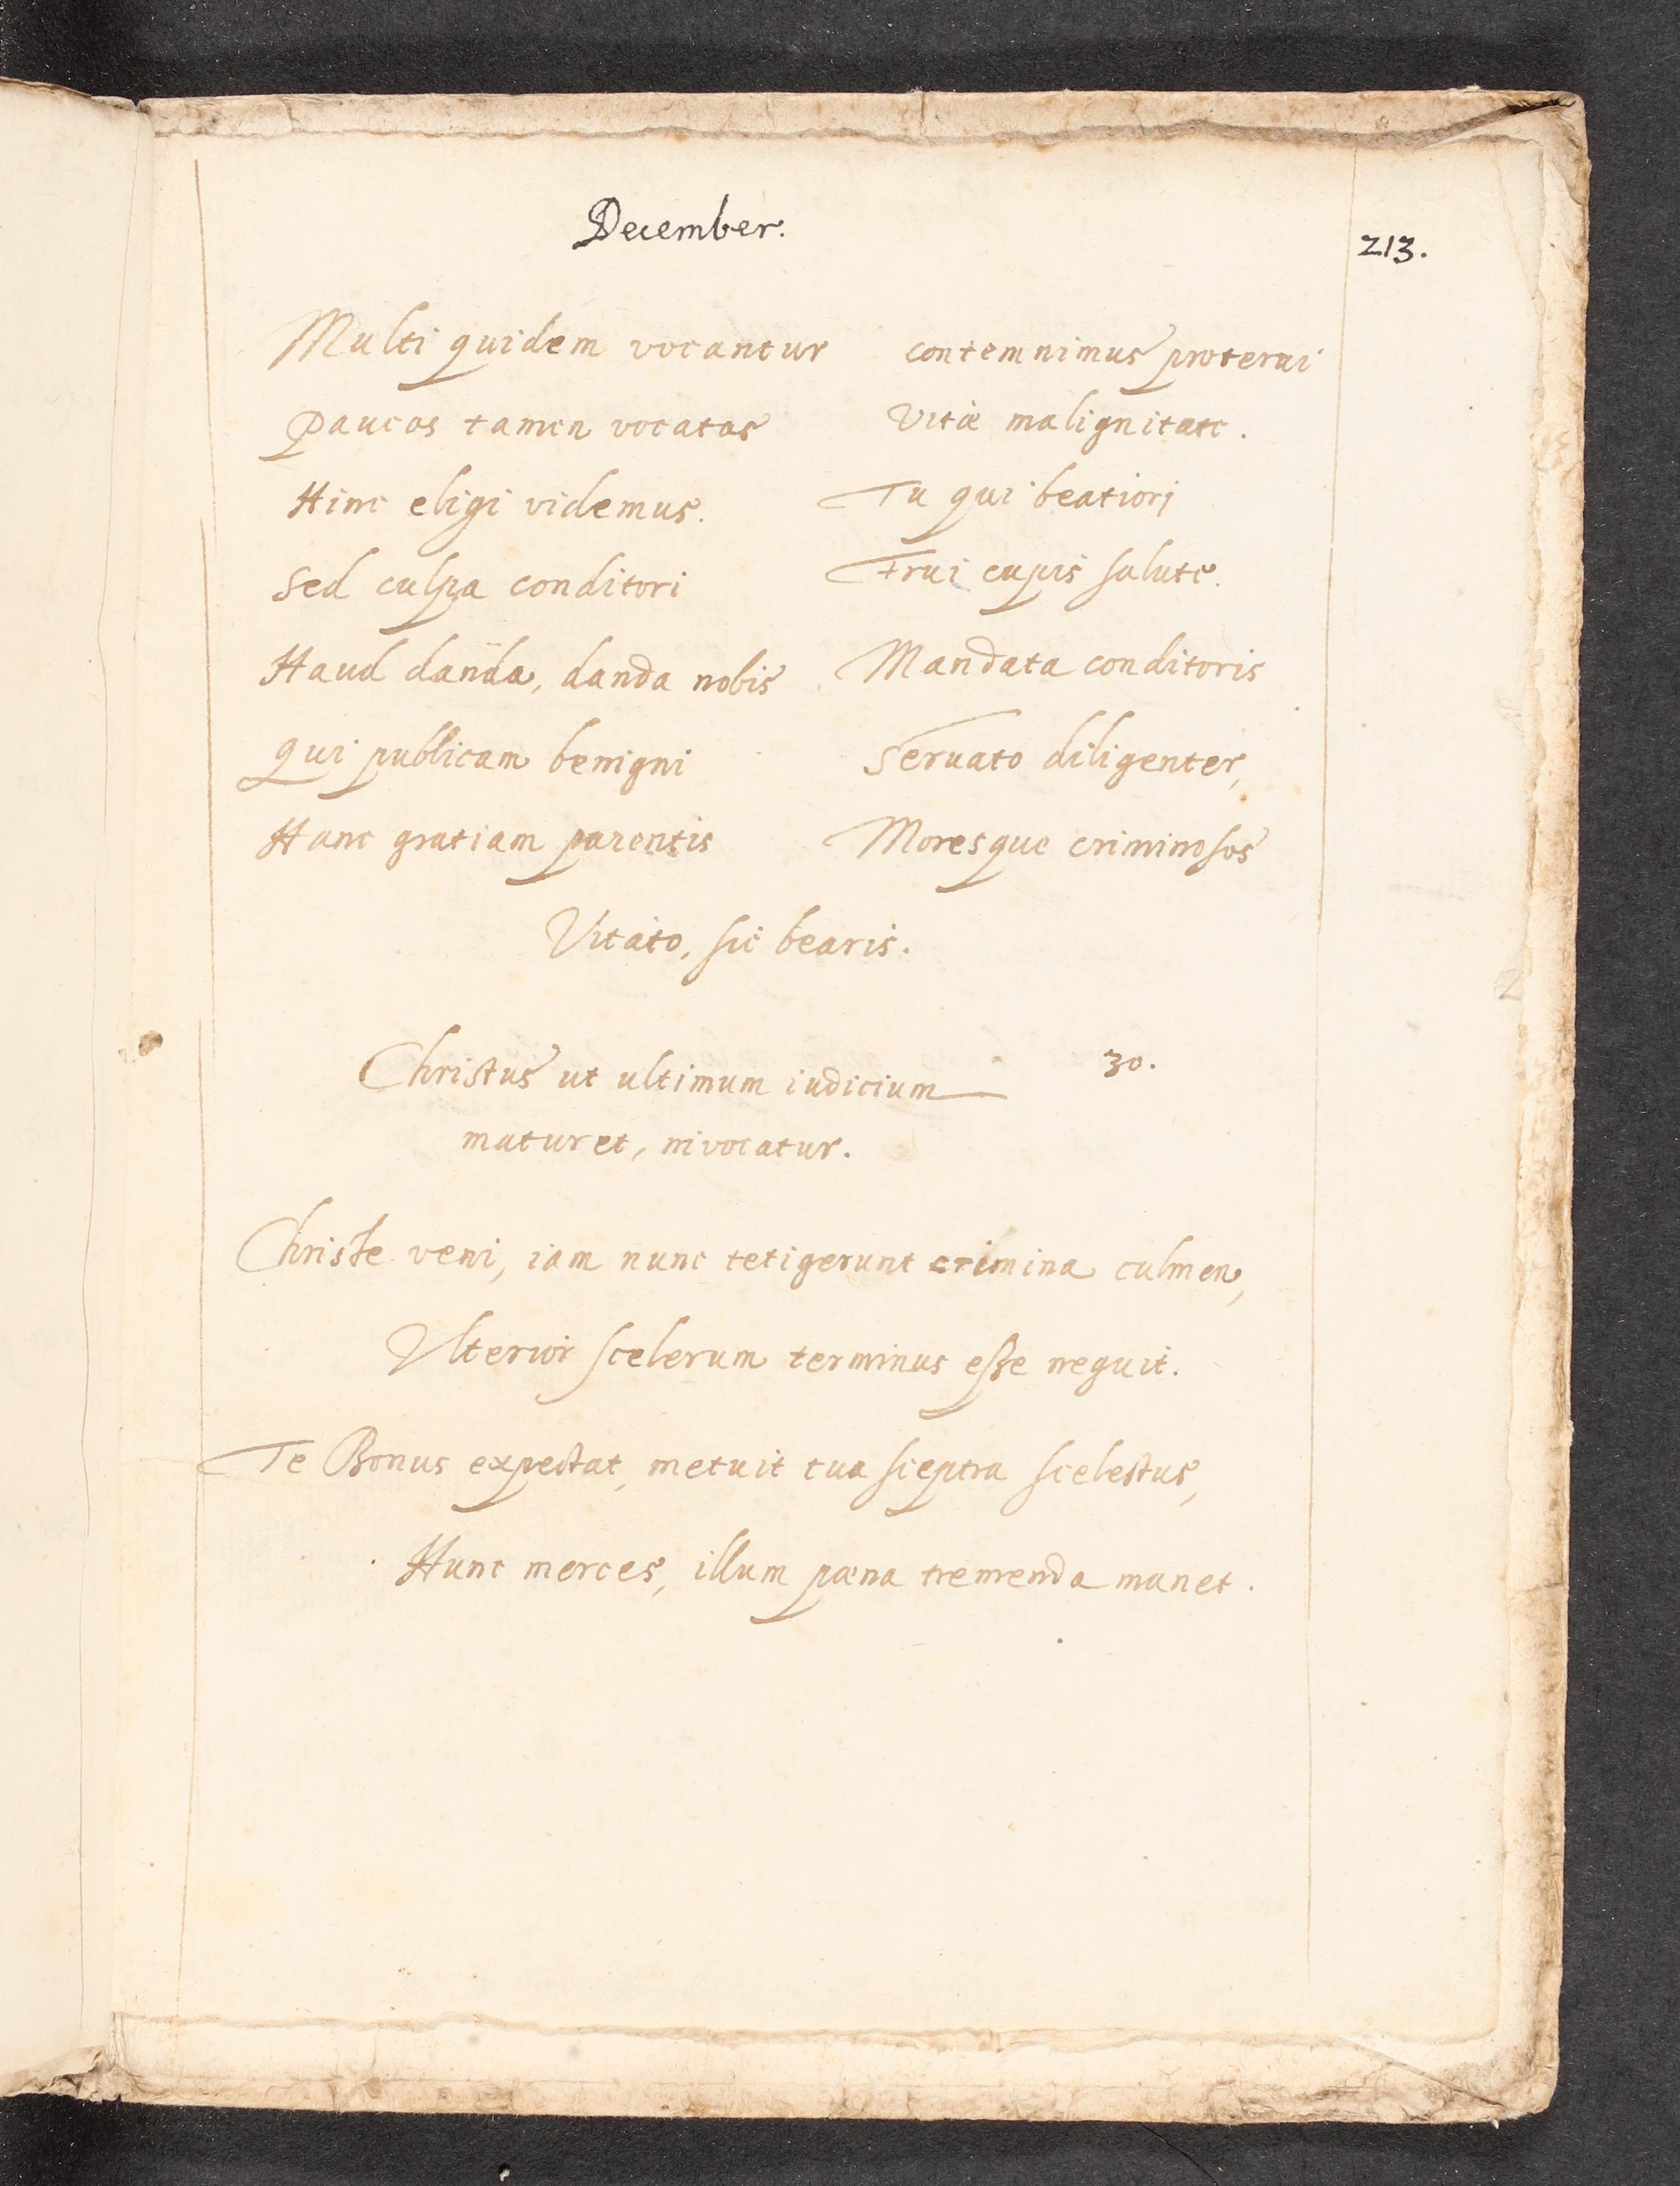 December.
213.
Multi quidem vocantur
Paucos tamen vocatos
Hinc eligi videmus.
Sed culpa conditori
Haud danda, danda nobis
Qui publicam benigni
Hanc gratiam parentis
contemnimus proterui
Vitæ malignitate.
Tu qui beatiori
Frui cupis salute.
Mandata conditoris
Seruato diligenter,
Moresque criminosos
Vitato, sic bearis.
Christus ut ultimum iudicium 30.
maturet, invocatur.
Christe veni, iam nunc tetigerunt crimina culmen,
Vlterior scelerum terminus esse nequit.
Te Bonus expectat, metuit tua sceptra scelestus,
Hunc merces, illum pœna tremenda manet.